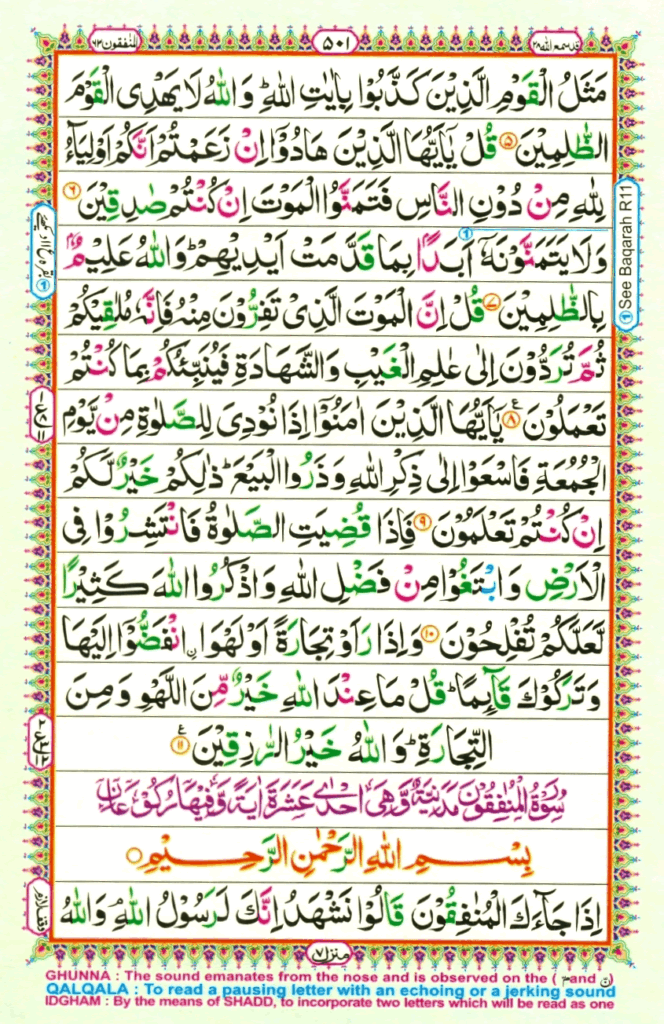 المنفقون ٦٣
٥٠١
قد سمع الله ٢٨
مَثَلُ الْقَوْمِ الَّذِيْنَ كَذَّبُوْا بِاٰيٰتِ اللّٰهِ ؕ وَ اللّٰهُ لَا يَهْدِى الْقَوْمَ
الظّٰلِمِيْنَ ﴿۵﴾ قُلْ يٰۤاَيُّهَا الَّذِيْنَ هَادُوْۤا اِنْ زَعَمْتُمْ اَنَّكُمْ اَوْلِيَآءُ
لِلّٰهِ مِنْ دُوْنِ النَّاسِ فَتَمَنَّوُا الْمَوْتَ اِنْ كُنْتُمْ صٰدِقِيْنَ ﴿۶﴾
وَ لَا يَتَمَنَّوْنَهٗۤ اَبَدًۢا بِمَا قَدَّمَتْ اَيْدِيْهِمْ ؕ وَ اللّٰهُ عَلِيْمٌۢ
بِالظّٰلِمِيْنَ ﴿۷﴾ قُلْ اِنَّ الْمَوْتَ الَّذِىْ تَفِرُّوْنَ مِنْهُ فَاِنَّهٗ مُلٰقِيْكُمْ
ثُمَّ تُرَدُّوْنَ اِلٰى عٰلِمِ الْغَيْبِ وَ الشَّهَادَةِ فَيُنَبِّئُكُمْ بِمَا كُنْتُمْ
تَعْمَلُوْنَ ﴿۸﴾ يٰۤاَيُّهَا الَّذِيْنَ اٰمَنُوْۤا اِذَا نُوْدِىَ لِلصَّلٰوةِ مِنْ يَّوْمِ
الْجُمُعَةِ فَاسْعَوْا اِلٰى ذِكْرِ اللّٰهِ وَ ذَرُوا الْبَيْعَ ؕ ذٰلِكُمْ خَيْرٌ لَّكُمْ
اِنْ كُنْتُمْ تَعْلَمُوْنَ ﴿۹﴾ فَاِذَا قُضِيَتِ الصَّلٰوةُ فَانْتَشِرُوْا فِى
الْاَرْضِ وَ ابْتَغُوْا مِنْ فَضْلِ اللّٰهِ وَ اذْكُرُوا اللّٰهَ كَثِيْرًا
لَّعَلَّكُمْ تُفْلِحُوْنَ ﴿۱۰﴾ وَ اِذَا رَاَوْ تِجَارَةً اَوْ لَهْوَا۟ اِنْفَضُّوْۤا اِلَيْهَا
وَ تَرَكُوْكَ قَآئِمًا ؕ قُلْ مَا عِنْدَ اللّٰهِ خَيْرٌ مِّنَ اللَّهْوِ وَ مِنَ
التِّجَارَةِ ؕ وَ اللّٰهُ خَيْرُ الرّٰزِقِيْنَ ﴿۱۱﴾
سُوْرَةُ الْمُنٰفِقُوْنَ مَدَنِيَّةٌ وَّهِىَ اِحْدٰى عَشَرَةَ اٰيَةً وَّفِيْهَا رُكُوْعَانِ
بِسْمِ اللّٰهِ الرَّحْمٰنِ الرَّحِيْمِ
اِذَا جَآءَكَ الْمُنٰفِقُوْنَ قَالُوْا نَشْهَدُ اِنَّكَ لَرَسُوْلُ اللّٰهِ ۘ وَ اللّٰهُ
See Baqarah R11
وقف لازم
منزل ٧
GHUNNA : The sound emanates from the nose and is observed on the ( م and ن )
QALQALA : To read a pausing letter with an echoing or a jerking sound
IDGHAM : By the means of SHADD, to incorporate two letters which will be read as one